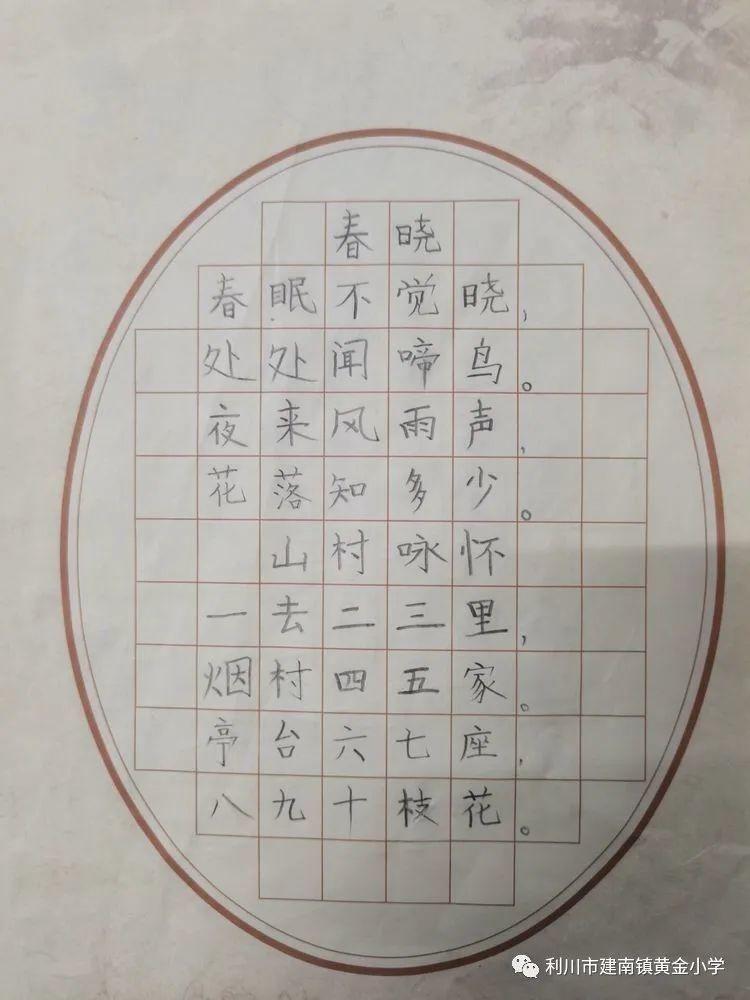 春晓
春眠不觉晓,
处处闻啼鸟。
夜来风雨声,
花落知多少。
山村咏怀
一去二三里,
烟村四五家。
亭台六七座,
八九十枝花。
利川市建南镇黄金小学